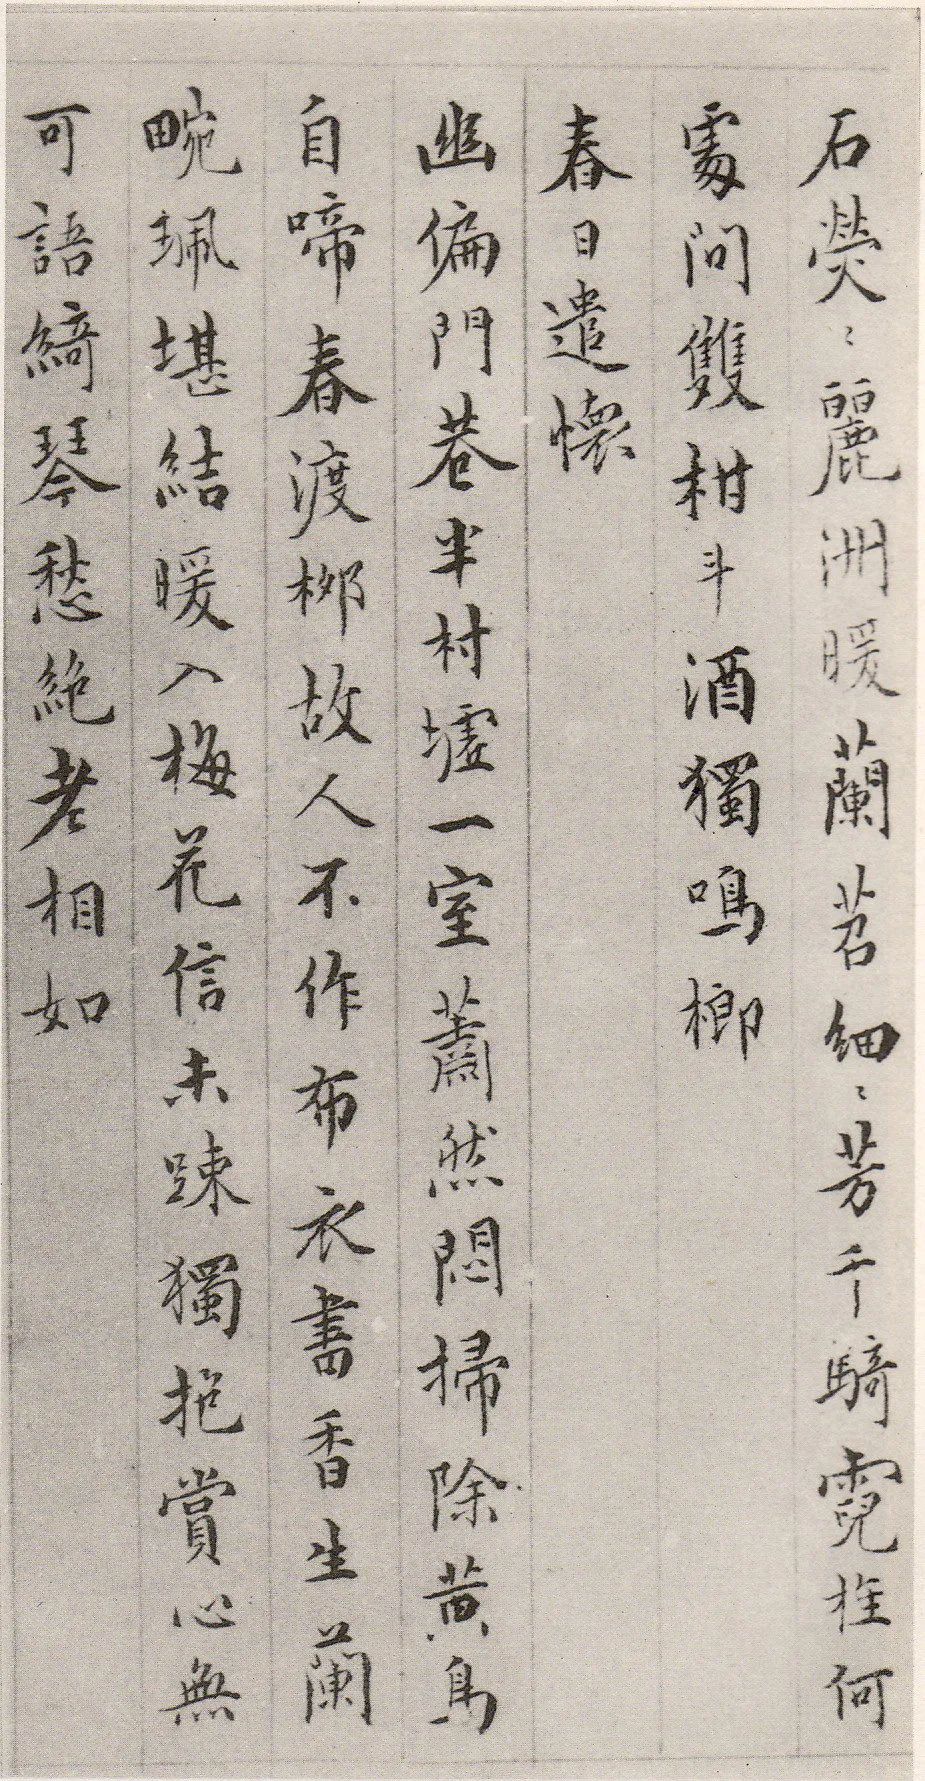 石熒〻麗洲暖蘭苕細〻芳千騎霓旌何
處問雙柑斗酒獨鳴榔
春日遣懷
幽偏門巷半村墟一室蕭然悶掃除黃鳥
自啼春渡柳故人不作布衣書香生蘭
畹珮堪結暖入梅花信未踈獨抱賞心無
可語綺琴愁絕老相如